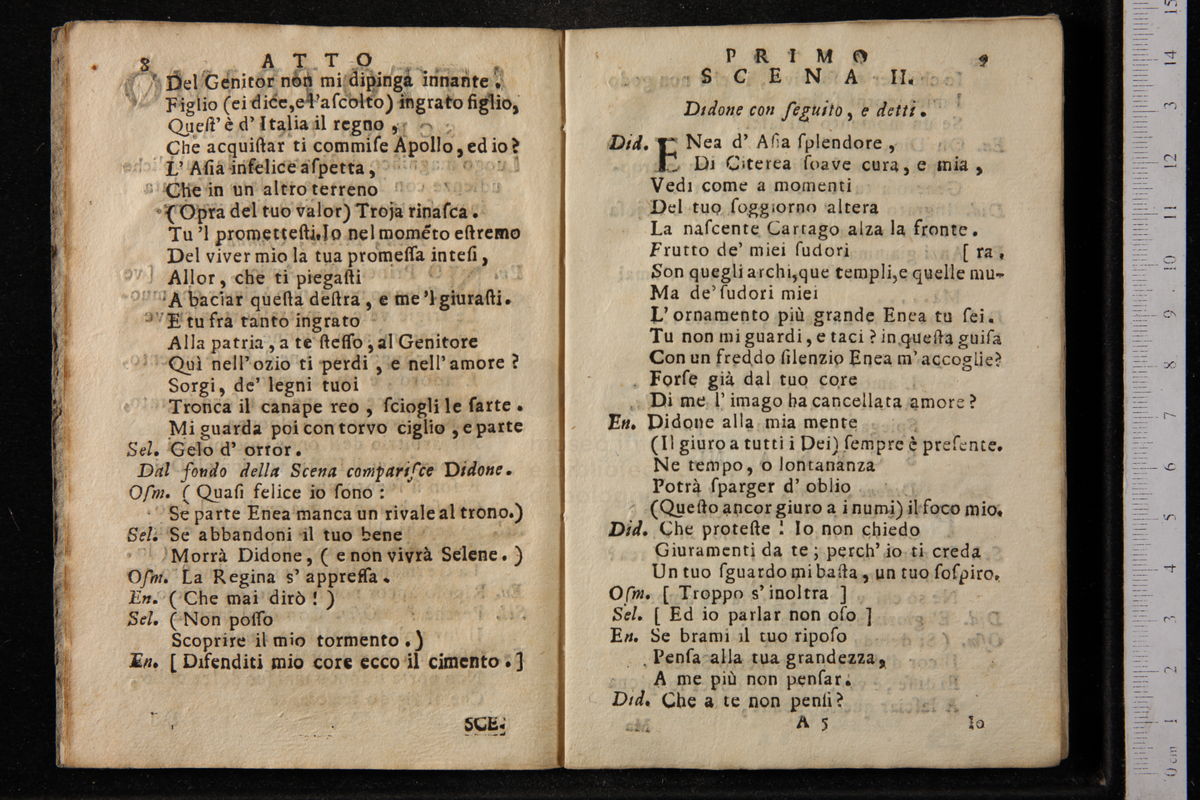 8 ATTO
Del Genitor non mi dipinga innante.
Figlio (ei dice,e l'aſcolto) ingrato figlio,
Queſt' è d' Italia il regno,
Che acquiſtar ti commiſe Apollo, ed io?
L' Aſia infelice aſpetta,
Che in un altro terreno
(Opra del tuo valor) Troja rinaſca.
Tu 'l prometteſti.Io nel mométo eſtremo
Del viver mio la tua promeſſa inteſi,
Allor, che ti piegaſti
A baciar queſta deſtra, e me 'l giuraſti.
E tu fra tanto ingrato
Alla patria, a te ſteſſo, al Genitore
Quì nell' ozio ti perdi, e nell' amore?
Sorgi, de' legni tuoi
Tronca il canape reo, ſciogli le ſarte.
Mi guarda poi con torvo ciglio, e parte
Sel. Gelo d' orror.
Dal fondo della Scena compariſce Didone.
Oſm. (Quaſi felice io ſono:
Se parte Enea manca un rivale al trono.)
Sel. Se abbandoni il tuo bene
Morrà Didone, (e non vivrà Selene.)
Oſm. La Regina s' appreſſa.
En. (Che mai dirò!)
Sel. (Non poſſo
Scoprire il mio tormento.)
En. [Difenditi mio core ecco il cimento.]
SCE-
PRIMO 9
SCENA II.
Didone con ſeguito, e detti.
Did. ENea d' Aſia ſplendore,
Di Citerea ſoave cura, e mia,
Vedi come a momenti
Del tuo ſoggiorno altera
La naſcente Cartago alza la fronte.
Frutto de' miei ſudori [ra,
Son quegli archi,que templi,e quelle mu-
Ma de' ſudori miei
L' ornamento più grande Enea tu ſei.
Tu non mi guardi, e taci? in queſta guiſa
Con un freddo ſilenzio Enea m' accoglie?
Forſe già dal tuo core
Di me l' imago ha cancellata amore?
En. Didone alla mia mente
(Il giuro a tutti i Dei) ſempre è preſente.
Ne tempo, o lontananza
Potrà ſparger d' oblio
(Queſto ancor giuro a i numi) il foco mio.
Did. Che proteſte! Io non chiedo
Giuramenti da te; perch' io ti creda
Un tuo ſguardo mi baſta, un tuo ſoſpiro.
Oſm. [Troppo s' inoltra]
Sel. [Ed io parlar non oſo]
En. Se brami il tuo ripoſo
Penſa alla tua grandezza,
A me più non penſar.
Did. Che a te non penſi?
A 5 Io